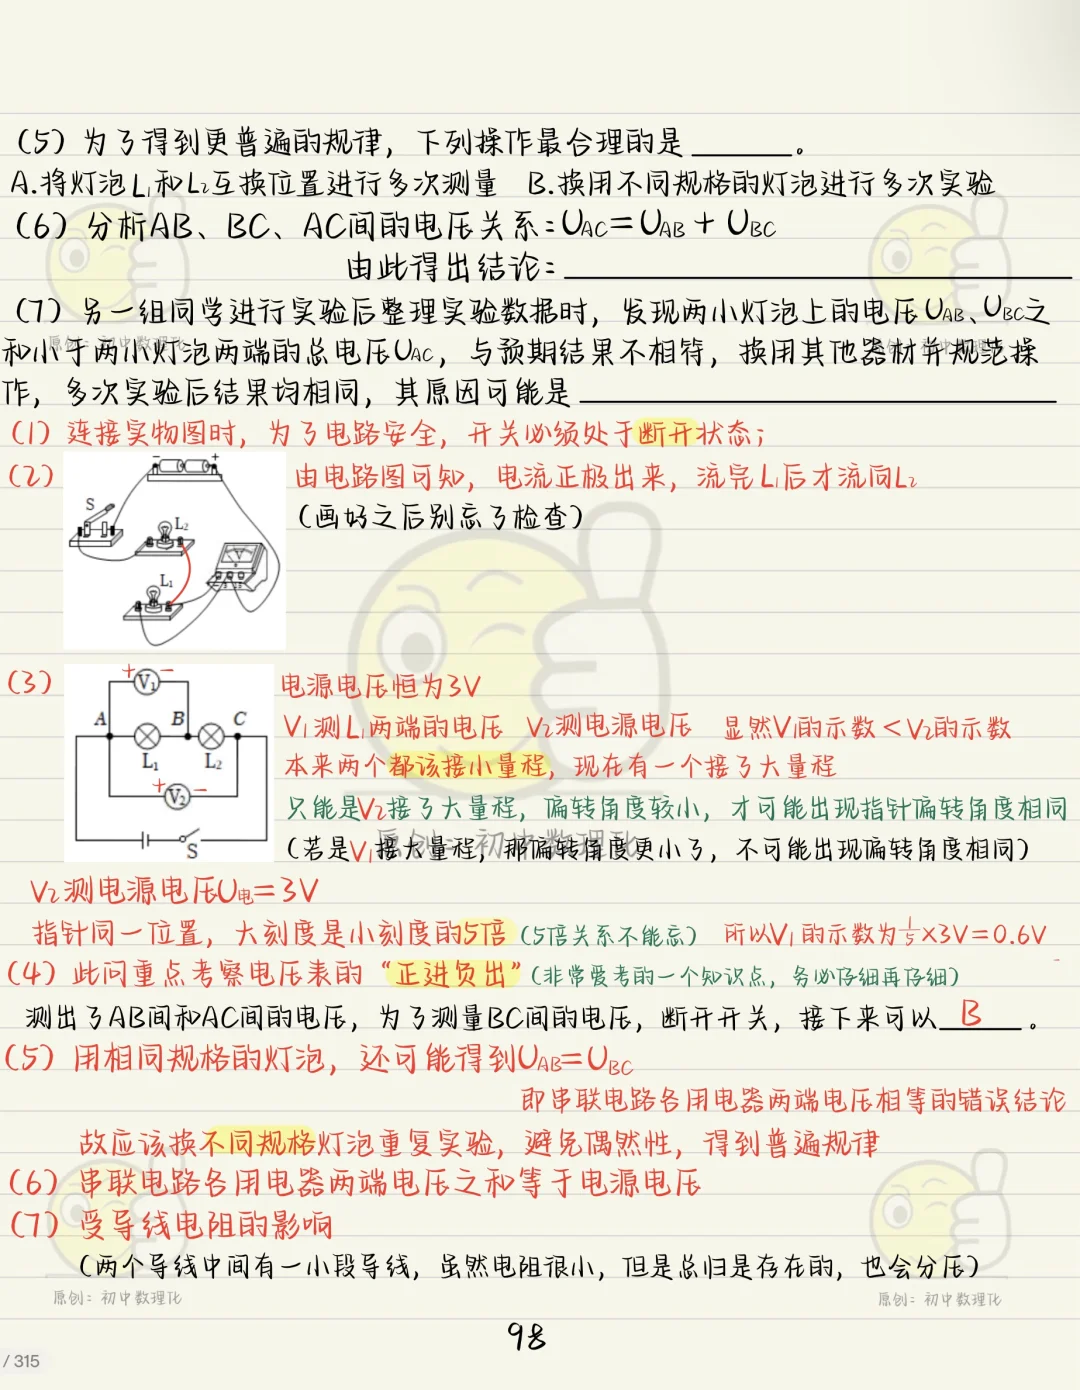 (5) 为了得到更普遍的规律，下列操作最合理的是______。
A.将灯泡L₁和L₂互换位置进行多次测量 B.换用不同规格的灯泡进行多次实验
(6) 分析AB、BC、AC间的电压关系：UAC=UAB+UBC
由此得出结论：______
(7) 另一组同学进行实验后整理实验数据时，发现两小灯泡上的电压UAB、UBC之
和小于两小灯泡两端的总电压UAC，与预期结果不相符，换用其他器材并规范操
作，多次实验后结果均相同，其原因可能是______
(1) 连接实物图时，为了电路安全，开关必须处于断开状态；
(2) 由电路图可知，电流正极出来，流完L₁后才流向L₂
(画好之后别忘了检查)
- +
S
L₂
V
L₁
(3) 电源电压恒为3V
V₁测L₁两端的电压 V₂测电源电压 显然V₁的示数<V₂的示数
本来两个都该接小量程，现在有一个接了大量程
只能是V₂接了大量程，偏转角度较小，才可能出现指针偏转角度相同
(若是V₁接大量程，那偏转角度更小了，不可能出现偏转角度相同)
+ V₁ -
A B C
L₁ L₂
+ V₂ -
S
V₂测电源电压U电=3V
指针同一位置，大刻度是小刻度的5倍(5倍关系不能忘) 所以V₁的示数为1/5×3V=0.6V
(4) 此问重点考察电压表的“正进负出”(非常爱考的一个知识点，务必仔细再仔细)
测出了AB间和AC间的电压，为了测量BC间的电压，断开开关，接下来可以 B 。
(5) 用相同规格的灯泡，还可能得到UAB=UBC
即串联电路各用电器两端电压相等的错误结论
故应该换不同规格灯泡重复实验，避免偶然性，得到普遍规律
(6) 串联电路各用电器两端电压之和等于电源电压
(7) 受导线电阻的影响
(两个导线中间有一小段导线，虽然电阻很小，但是总归是存在的，也会分压)
原创：初中数理化
原创：初中数理化
原创：初中数理化
原创：初中数理化
原创：初中数理化
98
/ 315